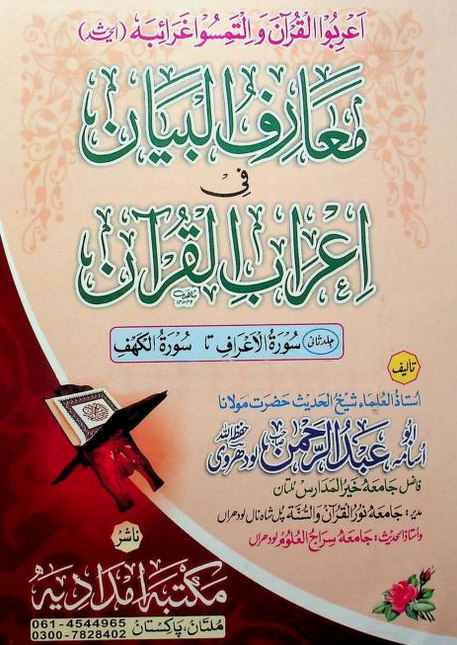 اَعرِبُوا القُرآنَ وَالتَمِسُوا غَرَائِبَہ (الحدیث)
مَعَارِفُ البَیَان
فِی
اِعرَابِ القُرآن
جلد ثانی سُورَۃُ الاَعرَافِ تا سُورَۃُ الکَہَفِ
تالیف
اُستاذُ العُلماء شیخُ الحدیث حضرت مولانا
ابو اُسامہ عَبدُ الرَّحمٰن لودھروی حفظہ اللہ
فاضل جامعہ خیرُ المدارس مُلتان
مدیر: جامعہ نورُ القُرآن والسُّنَّۃ پُل شاہ نال لودھراں
واُستاذُ الحدیث: جامعہ سِراجُ العُلُوم لودھراں
ناشر
مکتبہ اِمدادیہ
مُلتان، پاکستان
061-4544965
0300-7828402